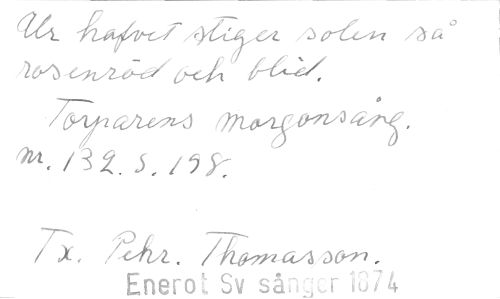 Ur hafvet stiger solen så
rosenröd och blid.
Torparens morgonsång.
nr. 132. s. 198.
Tx. Pehr. Thomasson.
Enerot Sv sånger 1874